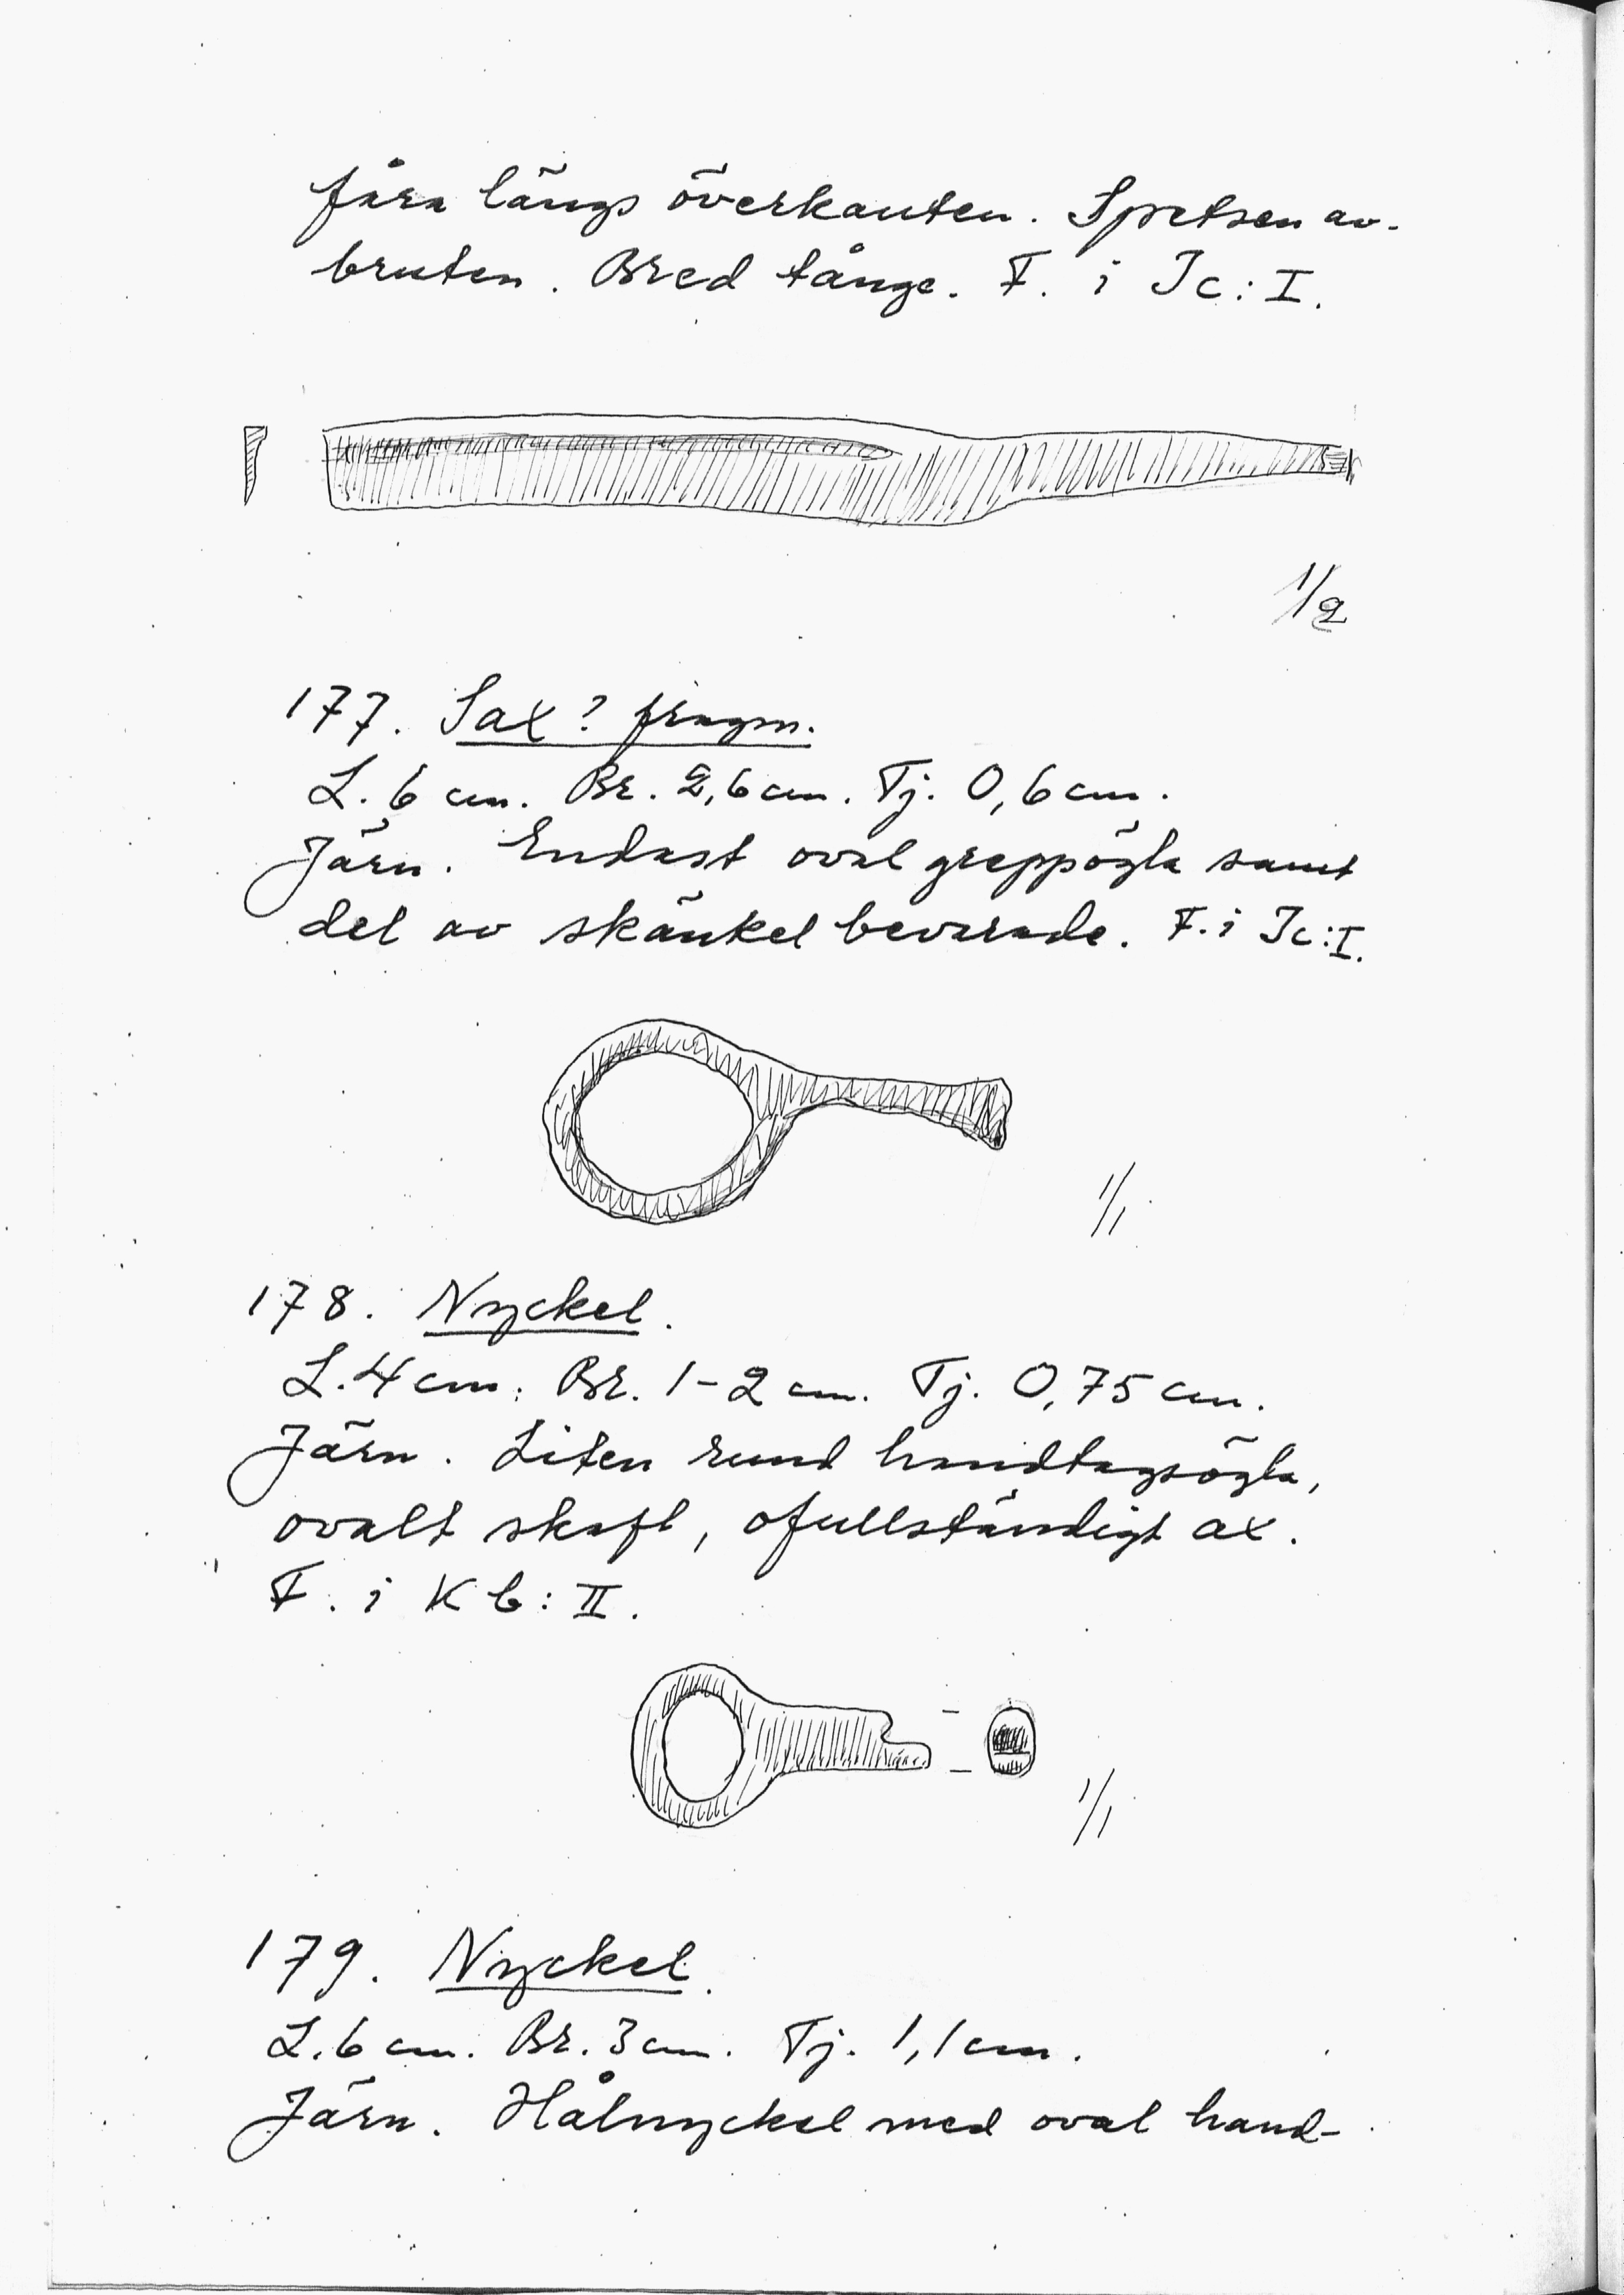 fåra längs överkanten. Spetsen av-
bruten. Bred tånge. F. i Jc: I.
1/2
177. Sax? fragm.
L. 6 cm. Br. 2,6 cm. Tj. 0,6 cm.
Järn. Endast oval greppögla samt
del av skänkel bevarade. F. i Jc: I.
1/1
178. Nyckel.
L. 4 cm. Br. 1-2 cm. Tj. 0,75 cm.
Järn. Liten rund handtagsögla,
ovalt skaft, ofullständigt ax.
F. i Kb: II.
1/1
179. Nyckel.
L. 6 cm. Br. 3 cm. Tj. 1,1 cm.
Järn. Hålnyckel med oval hand-